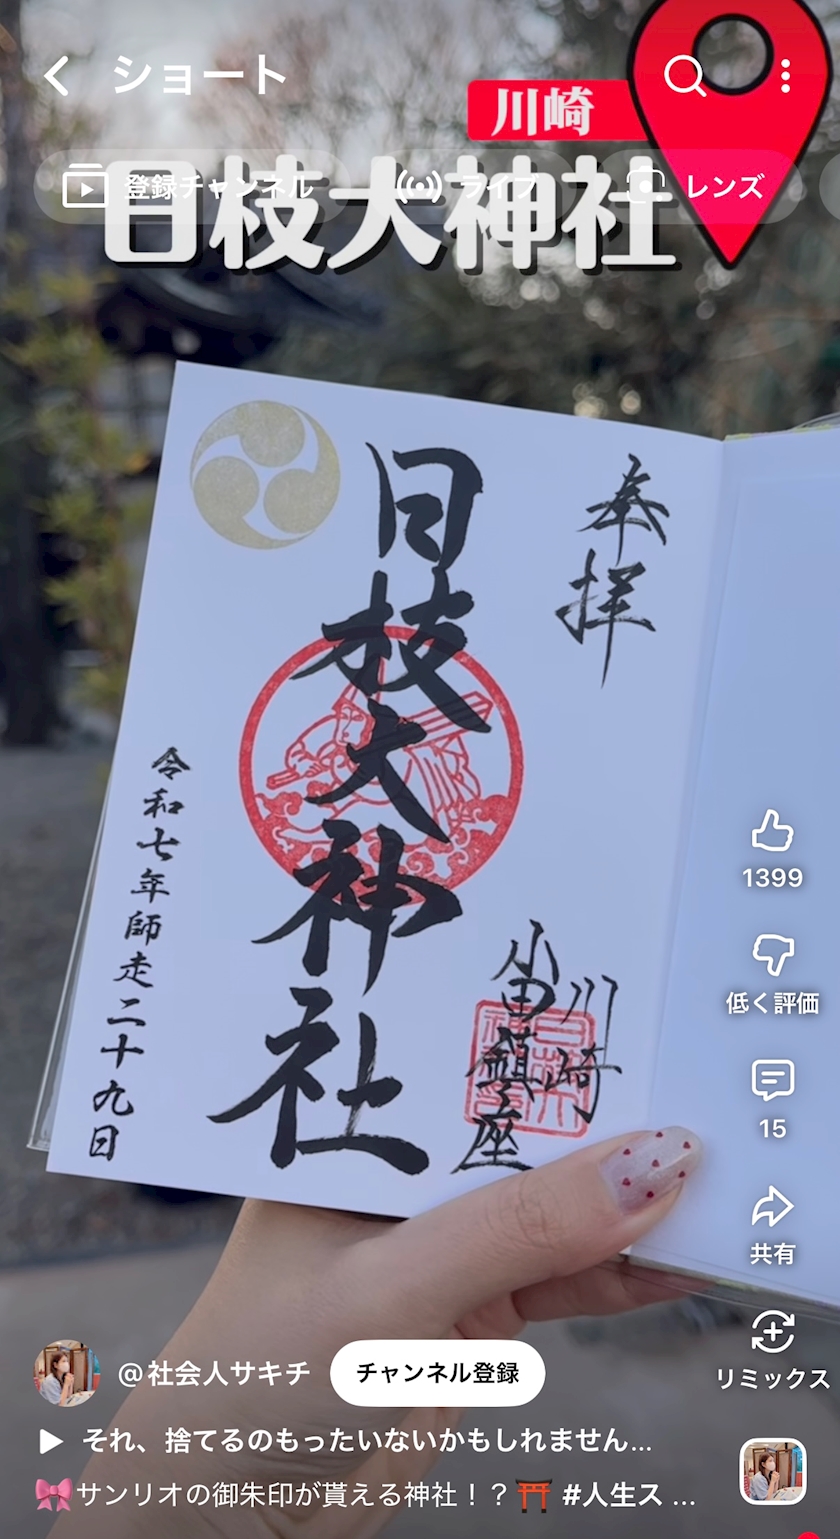 ショート
川崎
登録チャンネル
ライブ
レンズ
日枝大神社
奉拝
日枝大神社
川崎
小田鎮座
令和七年師走二十九日
1399
低く評価
15
共有
リミックス
@社会人サキチ
チャンネル登録
それ、捨てるのもったいないかもしれません...
🎀サンリオの御朱印が貰える神社！？⛩️ #人生ス ...